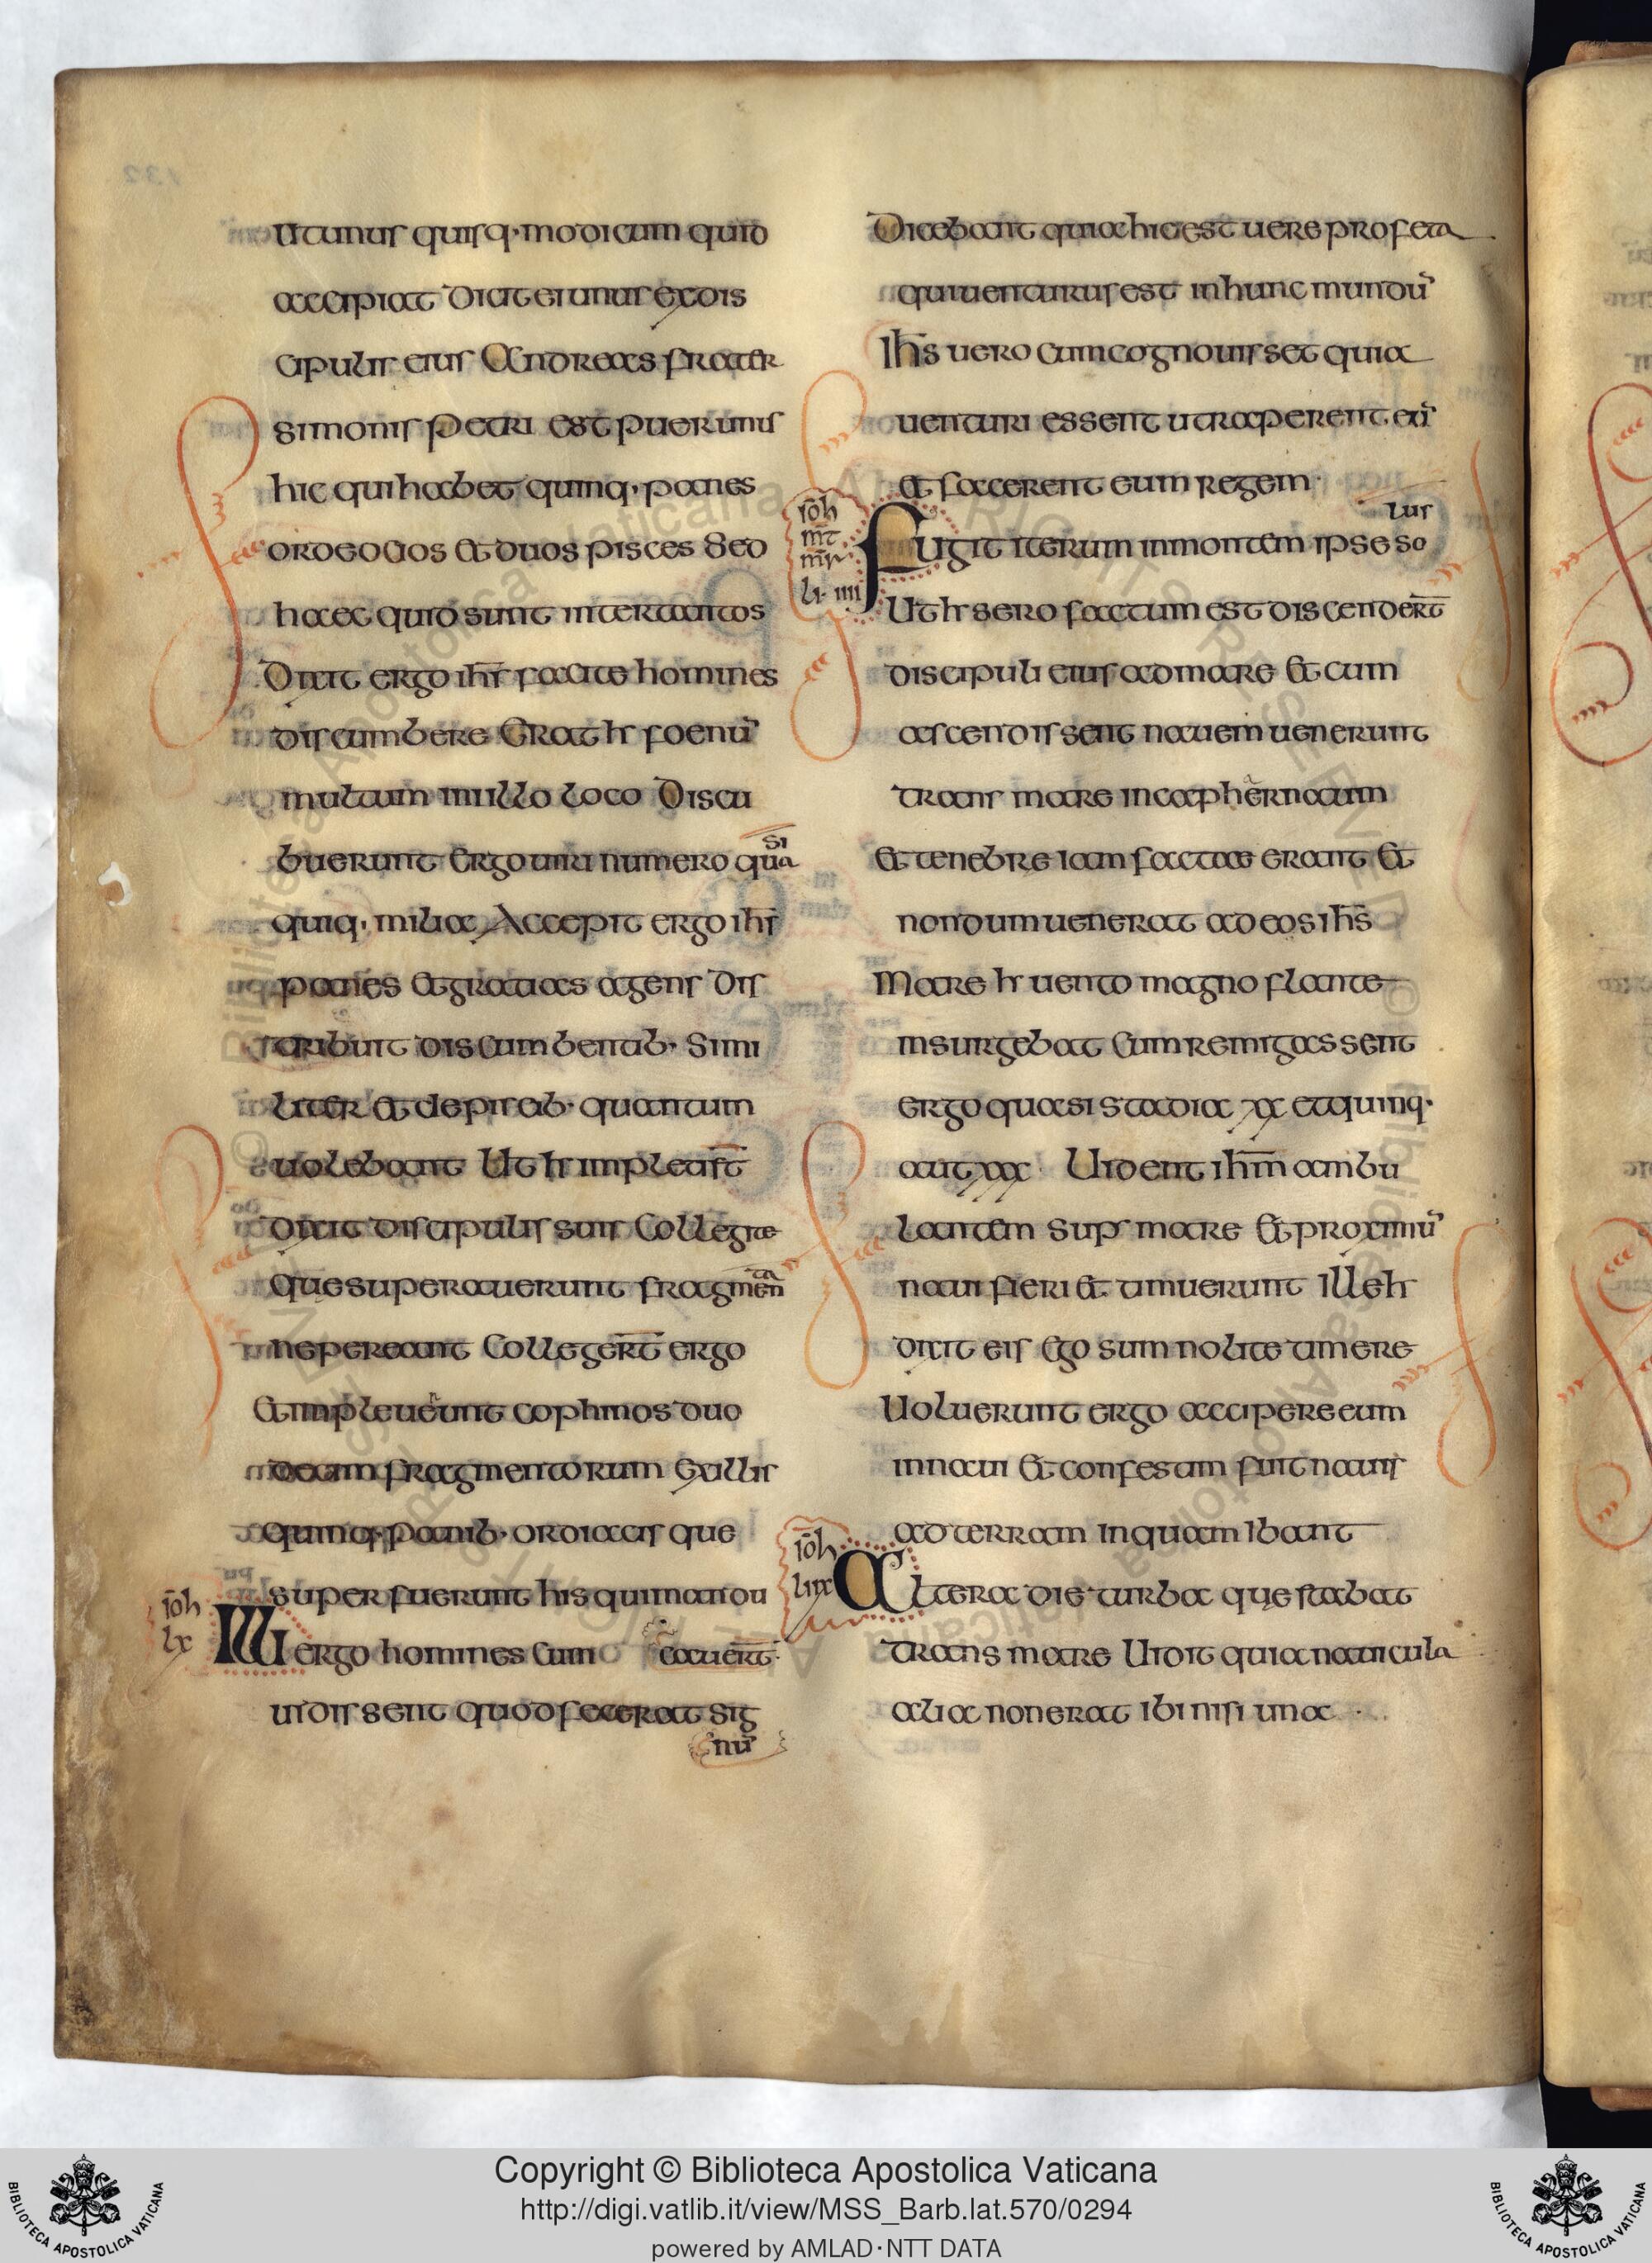 ut unus quisq· modicum quid
accipiat Dicit ei unus ex dis
cipulis eius Andreas frater
simonis petri est puer unus
hic qui habet quinq· panes
ordeacios et duos pisces Sed
haec quid sunt inter tantos
Dixit ergo ihs facite homines
discumbere Erat hr foenū
multum in illo loco Discu
buerunt Ergo uiri numero qua
si
quiq· milia Accepit ergo ihs
panes et gratias agens dis
tribuit discumbentib· Simi
liter et de piscib· quantum
uolebant Ut hr impleti st̄
dixit discipulis suis Collegite
que superauerunt fragmen
ta
ne pereant Collegert̄ ergo
Et impleuerunt cophinos duo
decim fragmentorum Ex illis
quinq· panib· ordiacis que
super fuerunt his qui mandu
cauert̄
iōh
lx
Illi ergo homines Cum
uidissent quod fecerat sig
nū
Dicebant quia hic est uere profeta
qui uenturus est in hunc mundū
Ihs uero cum cognouisset quia
uenturi essent ut raperent eū
et facerent eum regem
lus
iōh
mt̄
mr̄
li· iiii
Fugit iterum in montem ipse so
Ut hr sero factum est discendert̄
discipuli eius ad mare Et cum
ascendissent nauem uenerunt
trans mare in caphernaum
Et tenebre iam factae erant Et
nondum uenerat ad eos ihs
Mare hr uento magno flante
insurgebat Cum remigassent
ergo quasi stadia xx et quinq·
aut xxx Uident ihm̄ ambu
lantem sup mare Et proximū
naui fieri Et timuerunt Ille hr
dixit eis Ego sum nolite timere
Uoluerunt ergo accipere eum
in naui Et confestim fuit nauis
ad terram in quam ibant
iōh
lix
Altera die turba que stabat
trans mare Uidit quia nauicula
alia non erat ibi nisi una
Copyright © Biblioteca Apostolica Vaticana
http://digi.vatlib.it/view/MSS_Barb.lat.570/0294
powered by AMLAD·NTT DATA
BIBLIOTECA APOSTOLICA VATICANA
BIBLIOTECA APOSTOLICA VATICANA